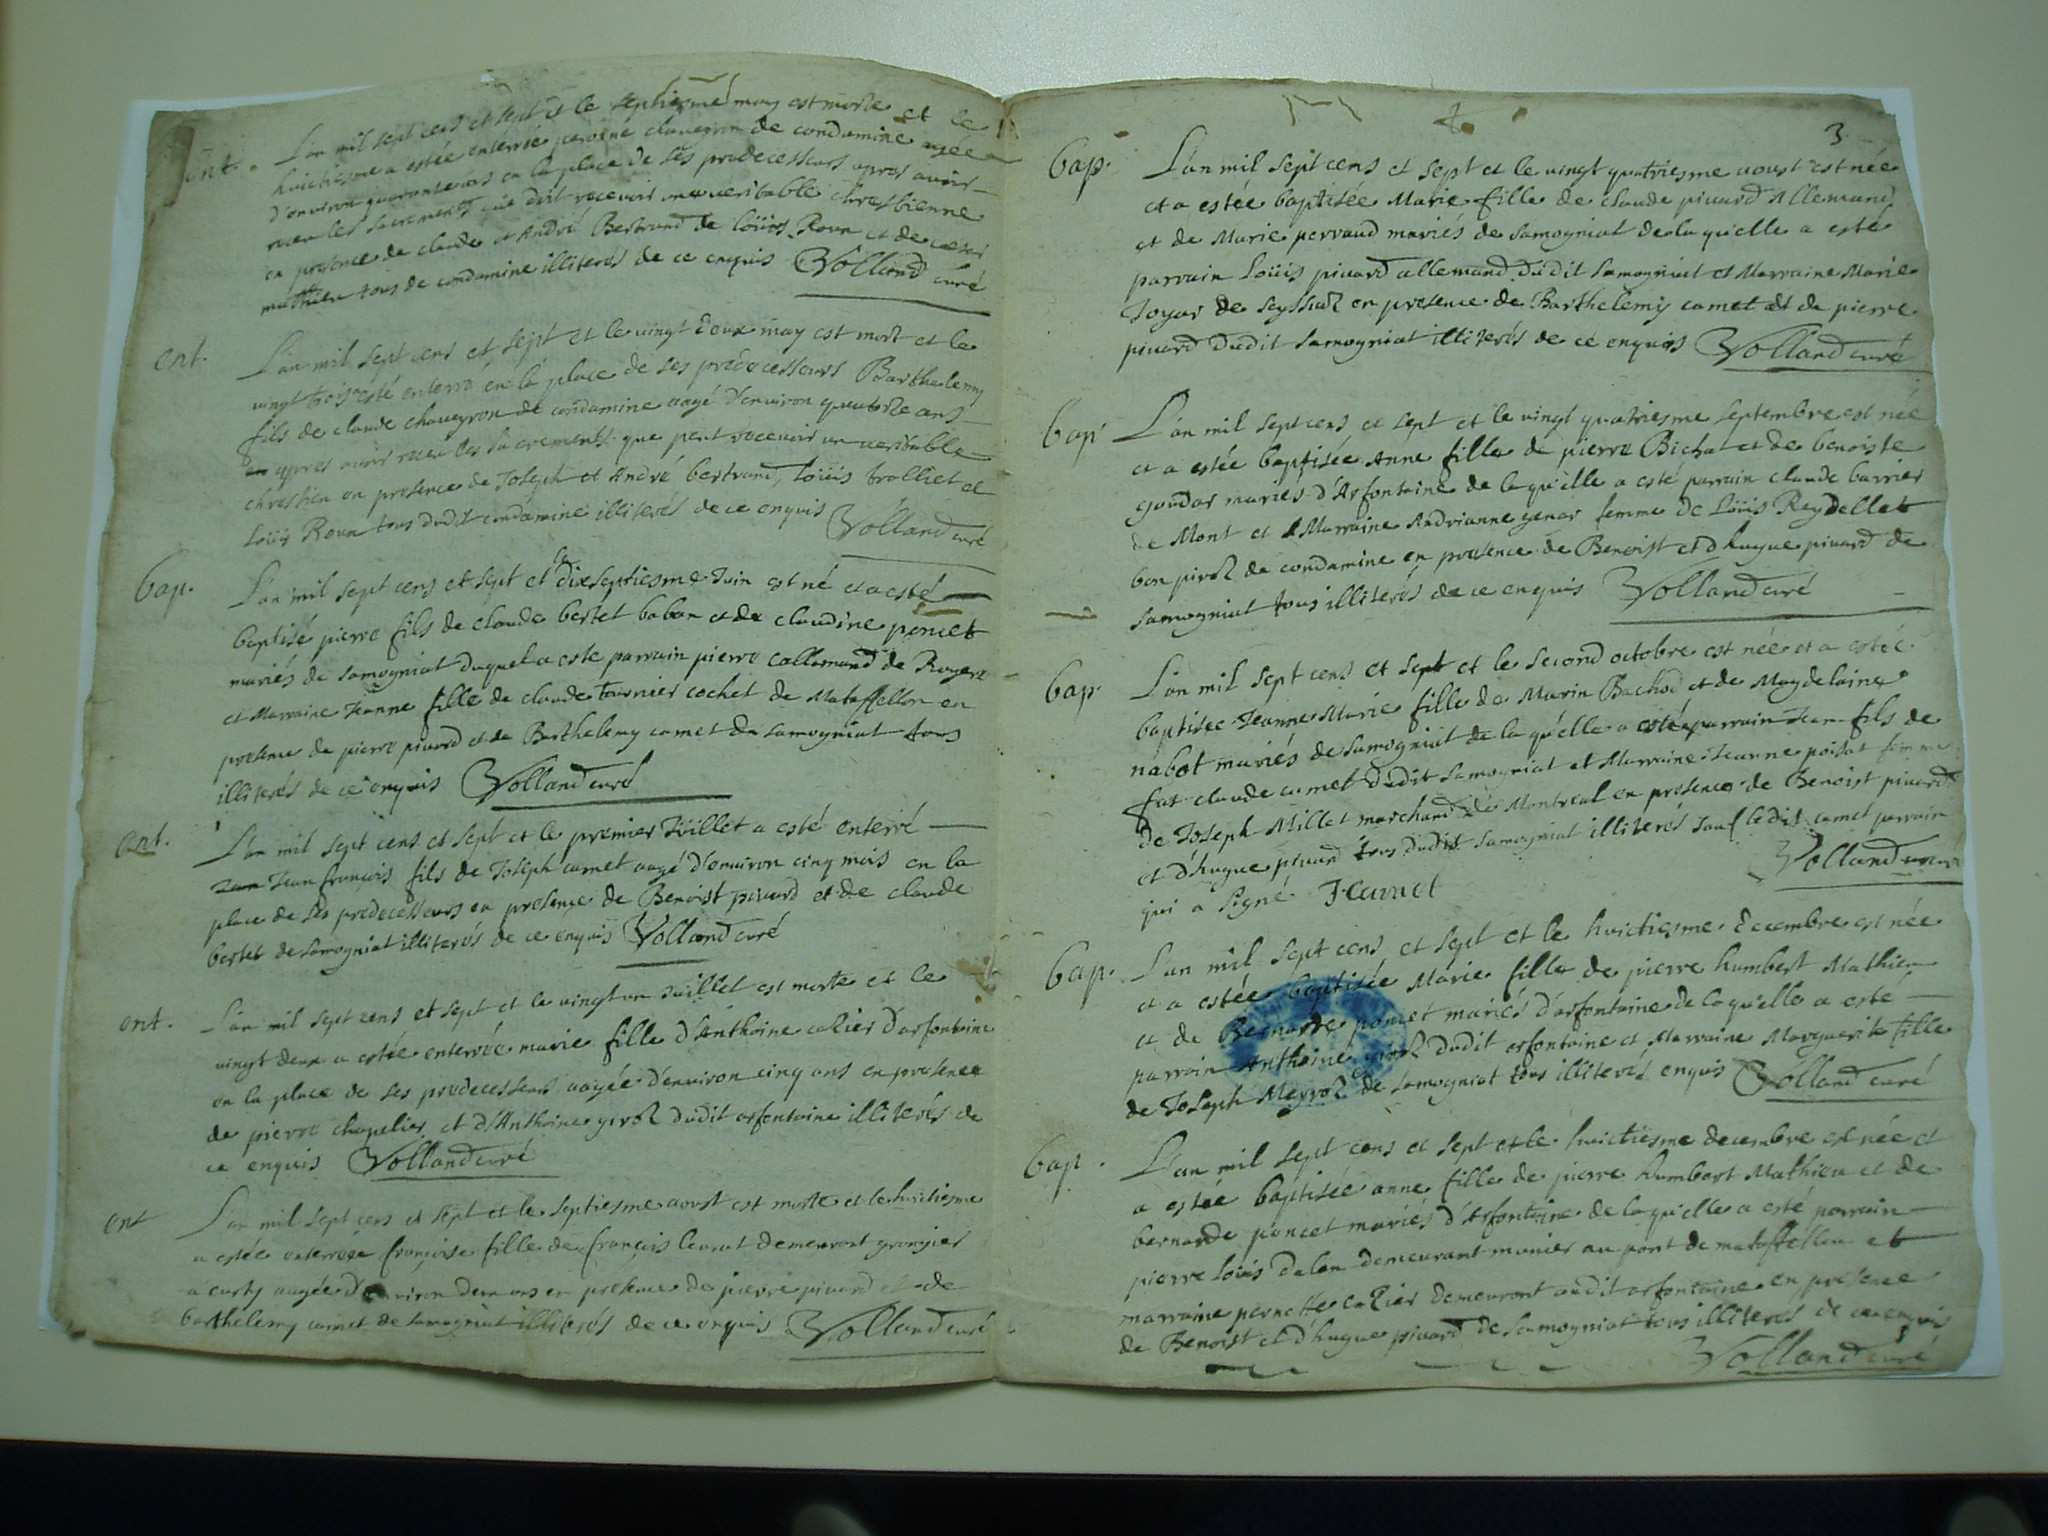 ent.
L'an mil sept cens et sept et le septiesme may est morte et le
huictiesme a estée enterrée pernine chaueyron de condamine agée
d'environ quarante ans en la place de ses predecesseurs apres avoir
receu les sacrements que doit recevoir une veritable chrestienne
en presence de claude et André Bertrand de Loüis Roux et de
mathieu tous de condamine illiterés de ce enquis Volland curé
ent.
L'an mil sept cens et sept et le vingt deux may est mort et le
vingt trois esté enterré en la place de ses predecesseurs Barthelemy
fils de claude chaueyron de condamine aagé d'environ quatorze ans
apres avoir receu les sacrements que peut recevoir un veritable
chrestien en presence de Joseph et André bertrand, Loüis trolliet et
Loüis Roux tous dudit condamine illiterés de ce enquis Volland curé
bap.
L'an mil sept cens et sept et le dixseptiesme Juin est né et a esté
baptisé pierre fils de claude bertet baban et de claudine poncet
mariés de samogniat duquel a esté parrain pierre callemand de Rogera
et Marraine Jeanne fille de claude tournier cochet de Mataffellon en
presence de pierre piuard et de Barthelemy camet de samogniat tous
illiterés de ce enquis Volland curé
ent.
L'an mil sept cens et sept et le premier Juillet a esté enterré
Jean françois fils de Joseph camet aagé d'environ cinq mois en la
place de ses predecesseurs en presence de Benoist piuard et de claude
bertet de samogniat illiterés de ce enquis Volland curé
ent.
L'an mil sept cens et sept et le vingt un Juillet est morte et le
vingt deux a estée enterrée marie fille d'Anthoine cazier d'arfontaine
en la place de ses predecesseurs aagée d'environ cinq ans en presence
de pierre chapelier et d'Anthoine giroz dudit arfontaine illiterés de
ce enquis Volland curé
ent
L'an mil sept cens et sept et le septiesme aoust est morte et le huictiesme
a estée enterrée françoise fille de françois leurat demeurant grangier
a curty aagée d'environ deux ans en presence de pierre piuard et de
barthelemy camet de samogniat illiterés de ce enquis Volland curé
3
bap.
L'an mil sept cens et sept et le vingt quatriesme aoust est née
et a estée baptisée Marie fille de claude piuard Allemand
et de Marie perraud mariés de samogniat de laquelle a esté
parrain Loüis piuard allemand dudit samogniat et Marraine Marie
Joyar de seyssiaz en presence de Barthelemy camet et de pierre
piuard dudit samogniat illiterés de ce enquis Volland curé
bap
L'an mil sept cens et sept et le vingt quatriesme septembre est née
et a estée baptisée Anne fille de pierre Bichat et de benoiste
goudar mariés d'Arfontaine de laquelle a esté parrain claude barrier
de Mont et Marraine Andrianne genar femme de Loüis Reydellet
bon piroz de condamine en presence de Benoist et d'hugue piuard de
samogniat tous illiterés de ce enquis Volland curé
bap.
L'an mil sept cens et sept et le second octobre est née et a estée
baptisée Jeanne Marie fille de Marin Bachod et de Magdelaine
nabot mariés de samogniat de laquelle a esté parrain Jean fils de
claude camet dudit samogniat et Marraine Jeanne poisat femme
de Joseph Millet marchand de Montreal en presence de Benoist piuard
et d'hugue piuard tous dudit samogniat illiterés sauf ledit camet parrain
qui a signé J camet
Volland curé
bap.
L'an mil sept cens et sept et le huictiesme Decembre est née
et a estée baptisée Marie fille de pierre humbert Mathieu
et de Bernarde poncet mariés d'arfontaine de laquelle a esté
parrain Anthoine giroz dudit arfontaine et Marraine Marguerite fille
de Joseph Meyroz de samogniat tous illiterés enquis Volland curé
bap.
L'an mil sept cens et sept et le huictiesme decembre est née et
a estée baptisée anne fille de pierre humbert Mathieu et de
bernarde poncet mariés d'Arfontaine de laquelle a esté parrain
pierre Loüis dalon demeurant munier au pont de mataffellon et
marraine pernette cazier demeurant audit arfontaine en presence
de Benoist et d'hugue piuard de samogniat tous illiterés de ce enquis
Volland curé